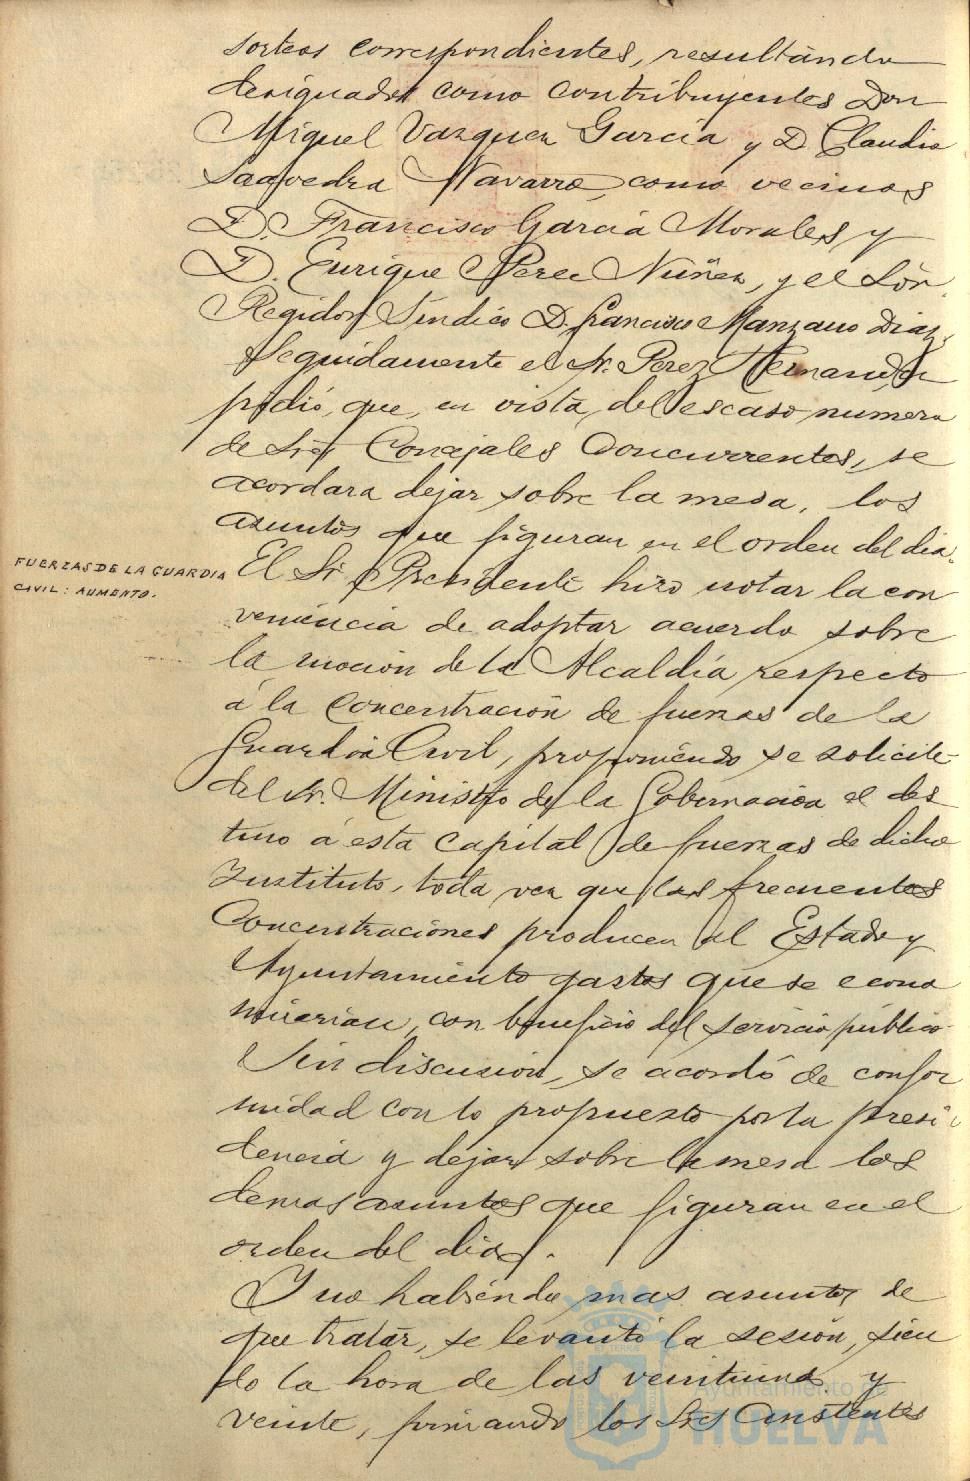 sorteos correspondientes, resultando
designados como contribuyentes Don
Miguel Vazquez García y D. Claudio
Saavedra Navarro, como vecinos
D. Francisco García Morales y
D. Enrique Perez Nuñez, y el Sór.
Regidor Síndico D. Francisco Manzano Diaz.
Seguidamente el Sr. Perez Hernandez
pidió, que, en vista del escaso numero
de Sres Concejales Concurrentes, se
acordara dejar sobre la mesa, los
asuntos que figuran en el orden del dia.
FUERZAS DE LA GUARDIA
CIVIL: AUMENTO.
El Sr. Presidente hizo notar la con
veniencia de adoptar acuerdo sobre
la moción de la Alcaldía respecto
á la Concentración de fuerzas de la
Guardia Civil, proponiendo se solicite
del Sr. Ministro de la Gobernación el des
tino á esta capital de fuerzas de dicho
Instituto, toda vez que las frecuentes
Concentraciones producen al Estado y
Ayuntamiento gastos que se econo
mizarian, con beneficio del servicio público
Sin discusión, se acordó de confor
midad con lo propuesto por la Presi
dencia y dejar sobre la mesa los
demas asuntos que figuran en el
orden del dia.
Y no habiendo mas asuntos de
que tratar, se levantó la sesión, sien
do la hora de las veintiuna y
veinte, firmando los Sres Asistentes
Ayuntamiento de
HUELVA